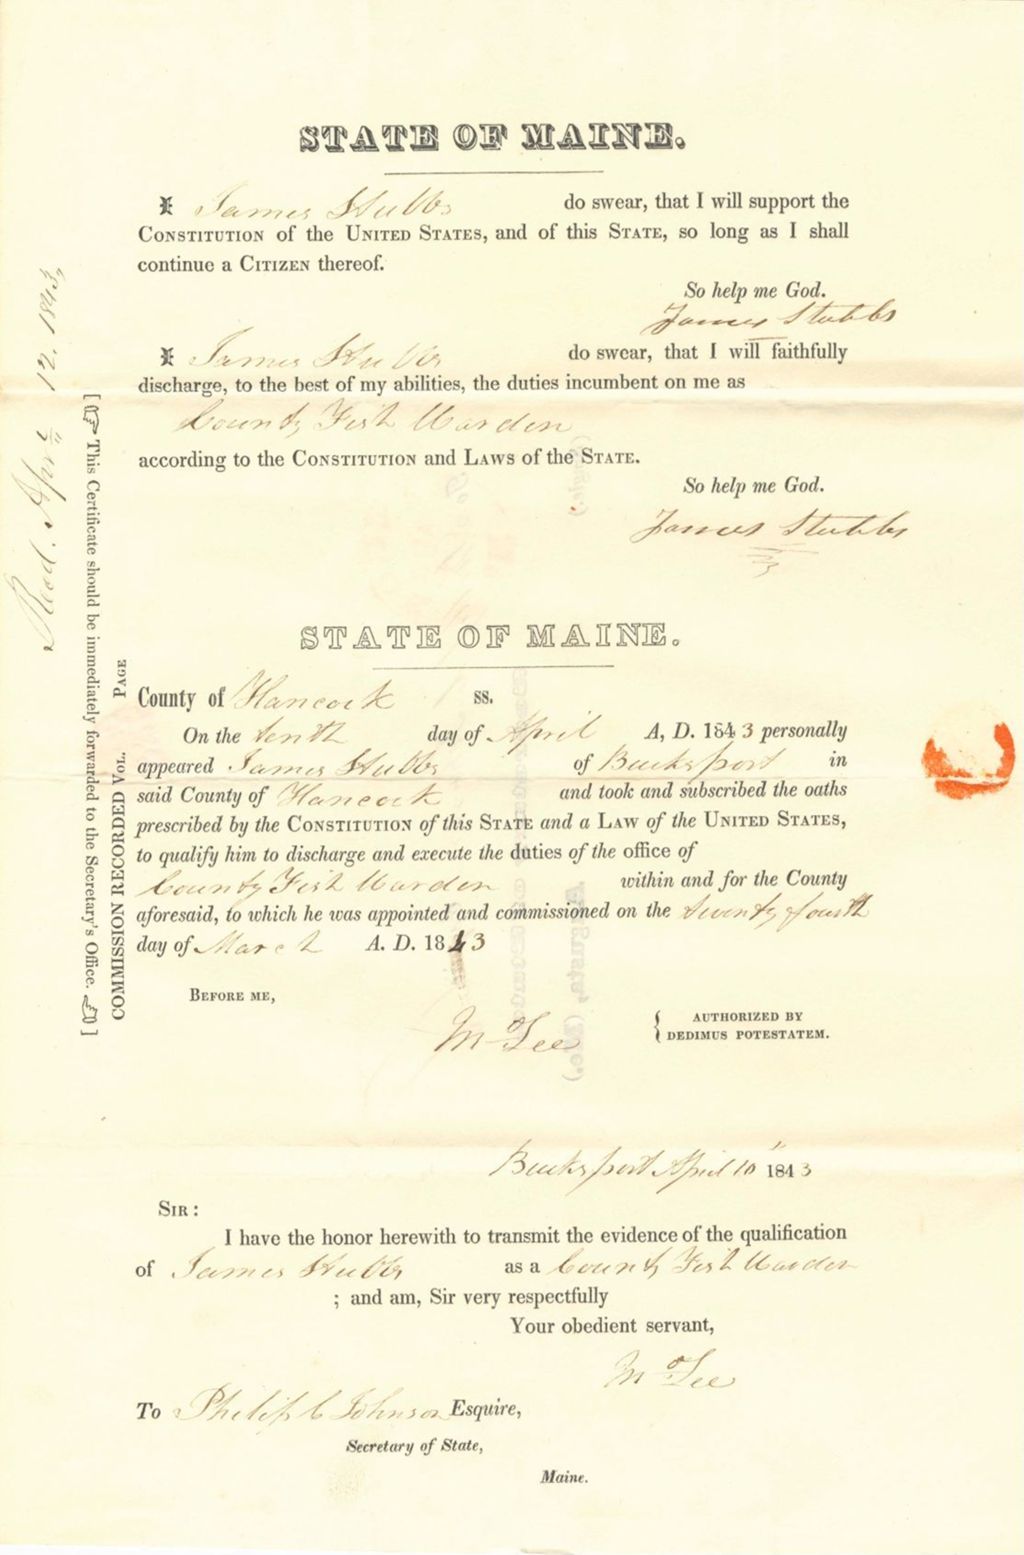 STATE OF MAINE.
I James Stubbs do swear, that I will support the
CONSTITUTION of the UNITED STATES, and of this STATE, so long as I shall
continue a CITIZEN thereof.
So help me God.
James Stubbs
I James Stubbs do swear, that I will faithfully
discharge, to the best of my abilities, the duties incumbent on me as
County Fish Warden
according to the CONSTITUTION and LAWS of the STATE.
So help me God.
James Stubbs
STATE OF MAINE.
County of Hancock ss.
On the tenth day of April A, D. 1843 personally
appeared James Stubbs of Bucksport in
said County of Hancock and took and subscribed the oaths
prescribed by the CONSTITUTION of this STATE and a LAW of the UNITED STATES,
to qualify him to discharge and execute the duties of the office of
County Fish Warden within and for the County
aforesaid, to which he was appointed and commissioned on the twenty fourth
day of March A. D. 1843
BEFORE ME,
M Lee
AUTHORIZED BY
DEDIMUS POTESTATEM.
Bucksport April 10" 1843
SIR:
I have the honor herewith to transmit the evidence of the qualification
of James Stubbs as a County Fish Warden
; and am, Sir very respectfully
Your obedient servant,
M Lee
To Philip C Johnson Esquire,
Secretary of State,
Maine.
COMMISSION RECORDED VOL. PAGE
[ This Certificate should be immediately forwarded to the Secretary's Office. ]
April 12. 1843,